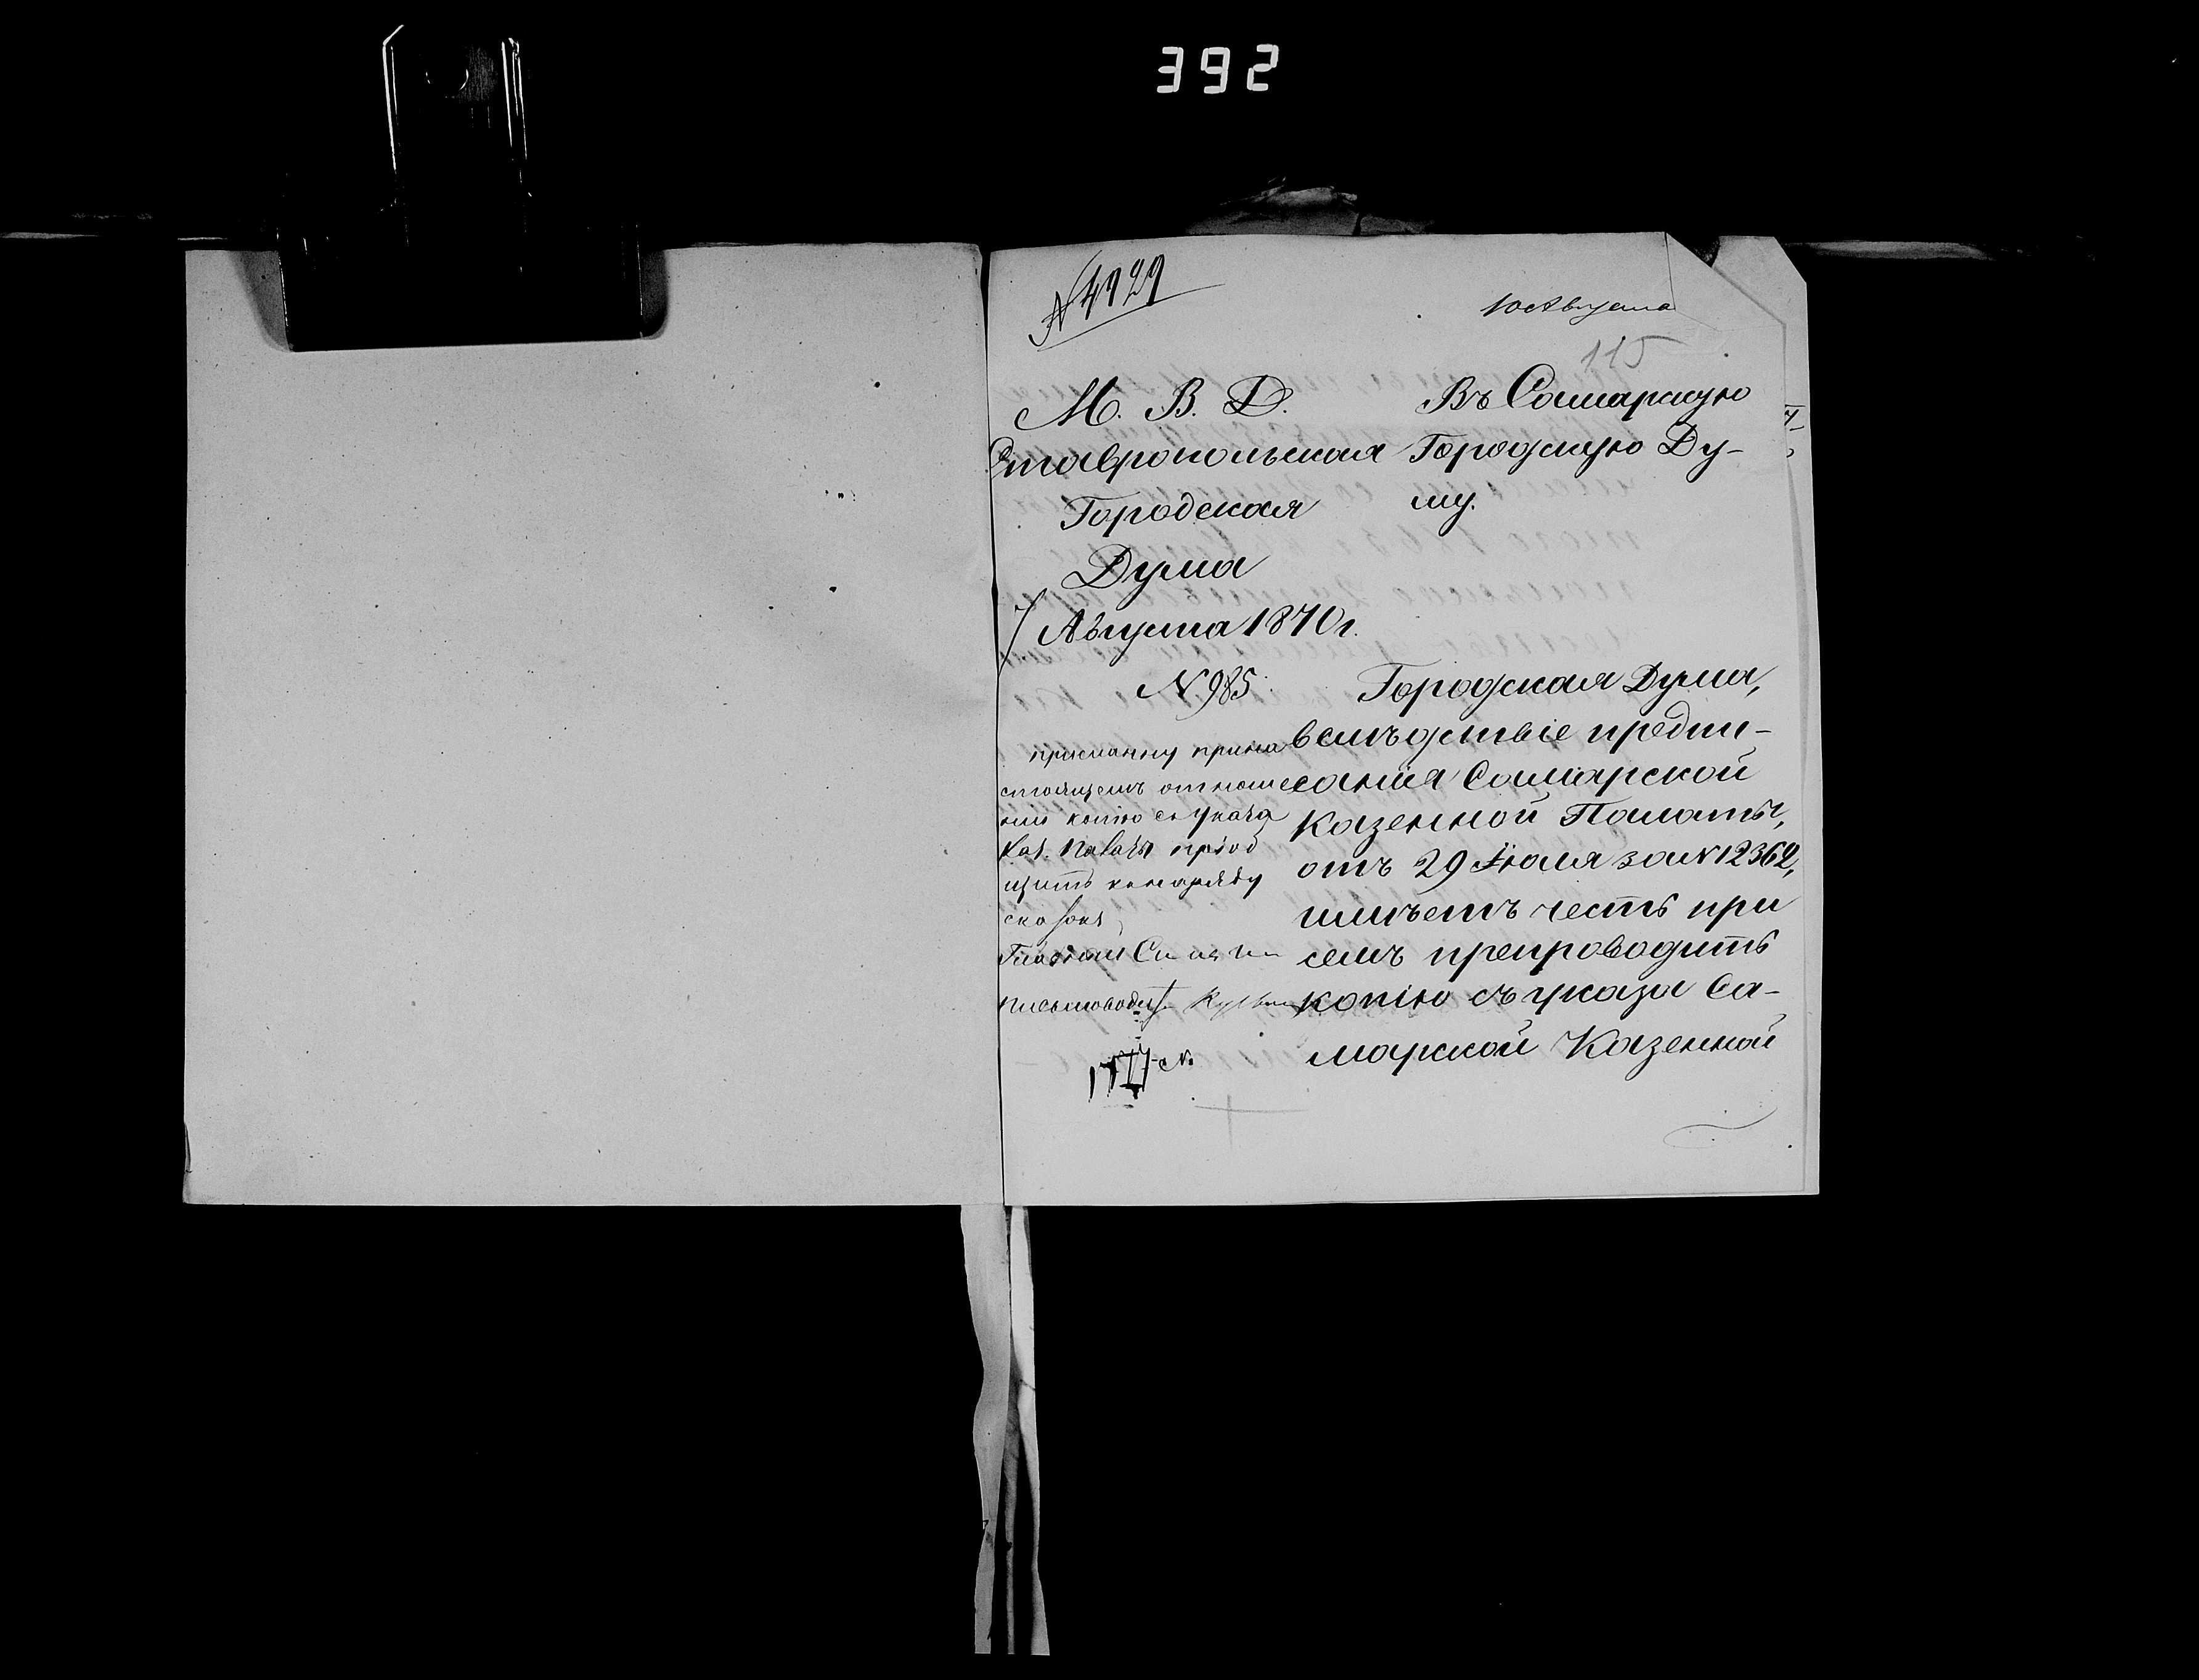 392
№ 4929
10 Августа
115
М. В. Д.
Ставропольская
Городская
Дума
7 Августа 1870 г.
№ 985.
Въ Самарскую
Городскую Ду-
му.
Городская Дума,
вслѣдствіе предпи-
санія Самарской
Казенной Палаты,
отъ 29 Іюля за № 12362,
имѣетъ честь при
семъ препроводить
копію съ указа Са-
марской Казенной
присланну при на
стоящемъ отноше
ніи копію съ Указа
Каз. Палаты пріоб
щить къ наряду
Гласный
Письмоводит